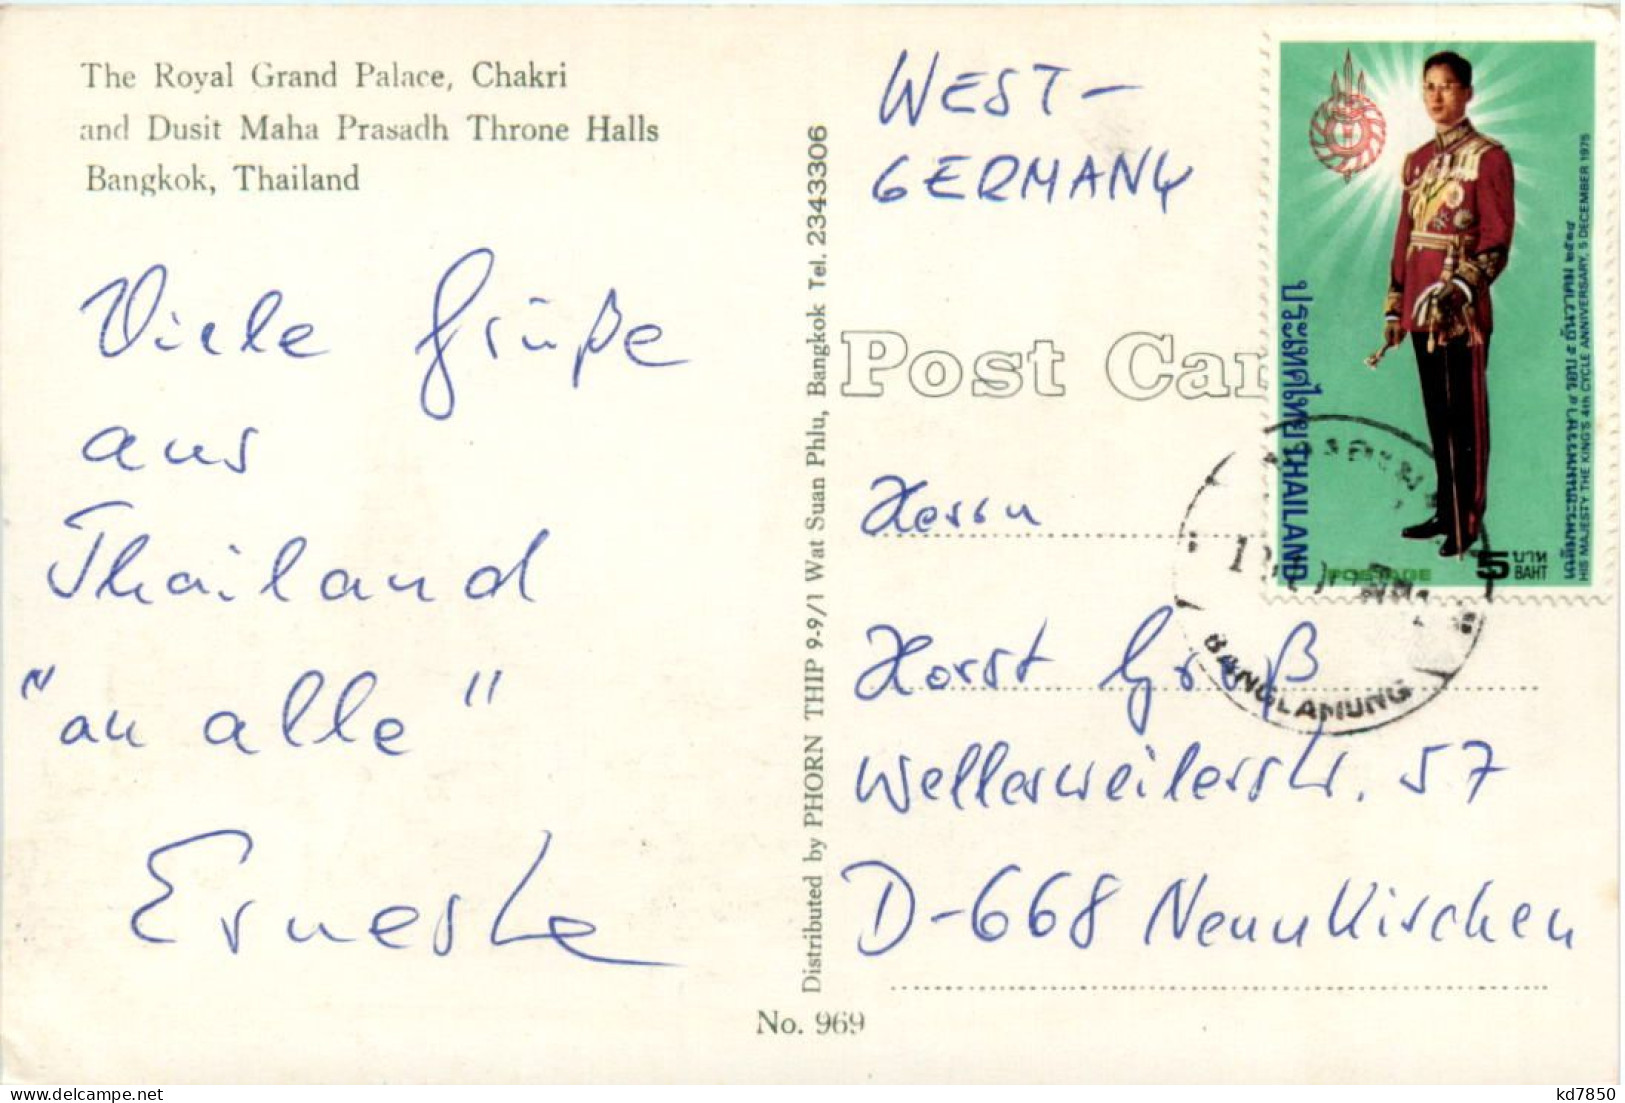 The Royal Grand Palace, Chakri
and Dusit Maha Prasadh Throne Halls
Bangkok, Thailand
Viele Grüße
aus
Thailand
"an alle"
Distributed by PHORN THIP 9-9/1 Wat Suan Phlu, Bangkok Tel. 2343306
No. 969
WEST-
GERMANY
Post Car
Herrn
Horst Groß
Wellesweilerstr. 57
D-668 Neunkirchen
ประเทศไทย THAILAND
POSTAGE
5 บาท
BAHT
HIS MAJESTY THE KING'S 4th CYCLE ANNIVERSARY, 5 DECEMBER 1975
BANGLAMUNG
kd7850